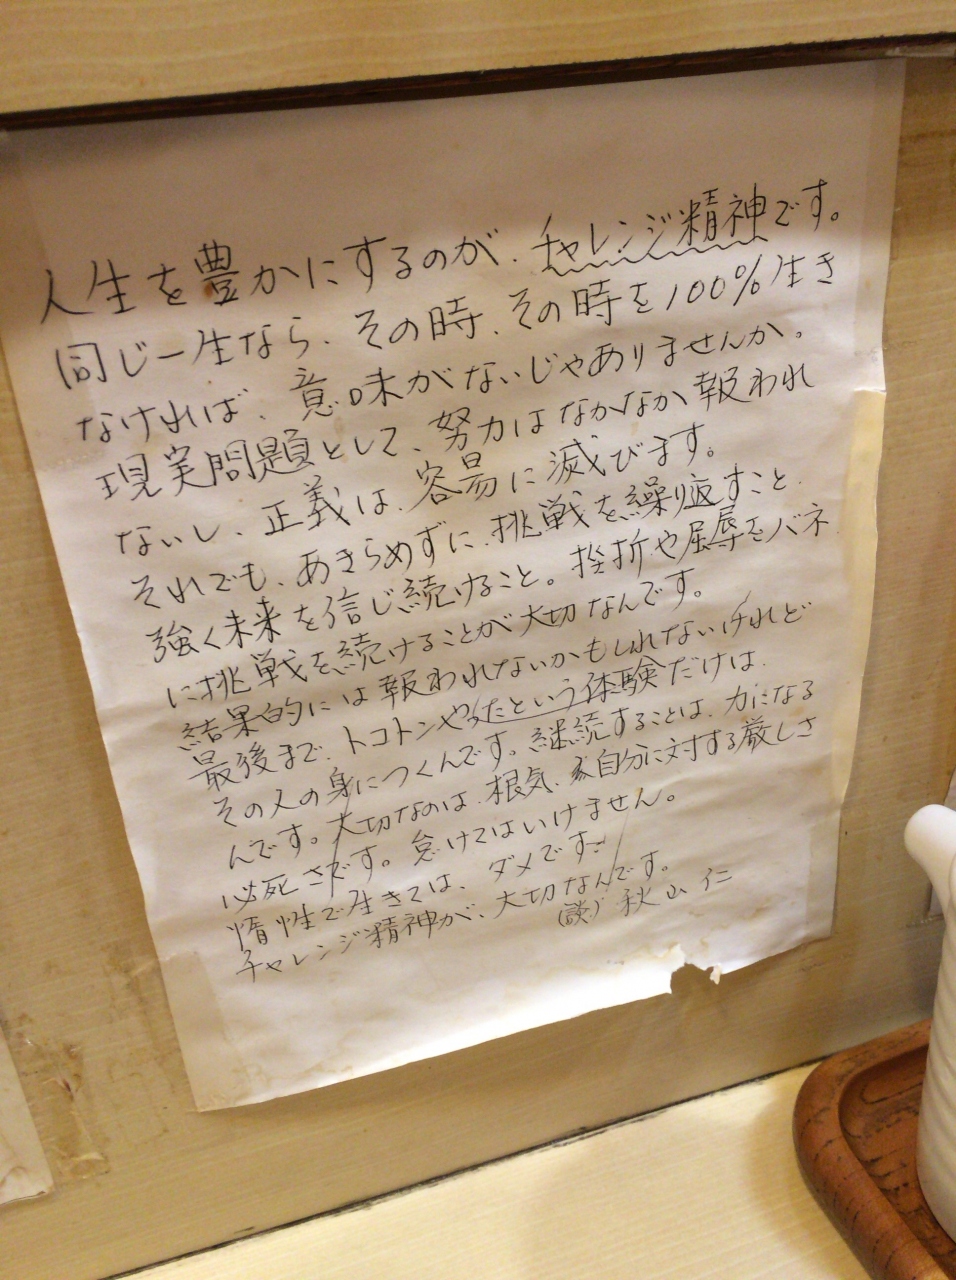 人生を豊かにするのが、チャレンジ精神です。
同じ一生なら、その時、その時を100%生き
なければ、意味がないじゃありませんか。
現実問題として、努力はなかなか報われ
ないし、正義は、容易に滅びます。
それでも、あきらめずに、挑戦を繰り返すこと、
強く未来を信じ続けること。挫折や屈辱をバネ
に挑戦を続けることが大切なんです。
結果的には報われないかもしれないけれど
最後まで、トコトンやったという体験だけは、
その人の身につくんです。継続することは、力になる
んです。大切なのは、根気、自分に対する厳しさ
必死さです。怠けてはいけません。
惰性で生きては、ダメです。
チャレンジ精神が、大切なんです。
(談) 秋山 仁